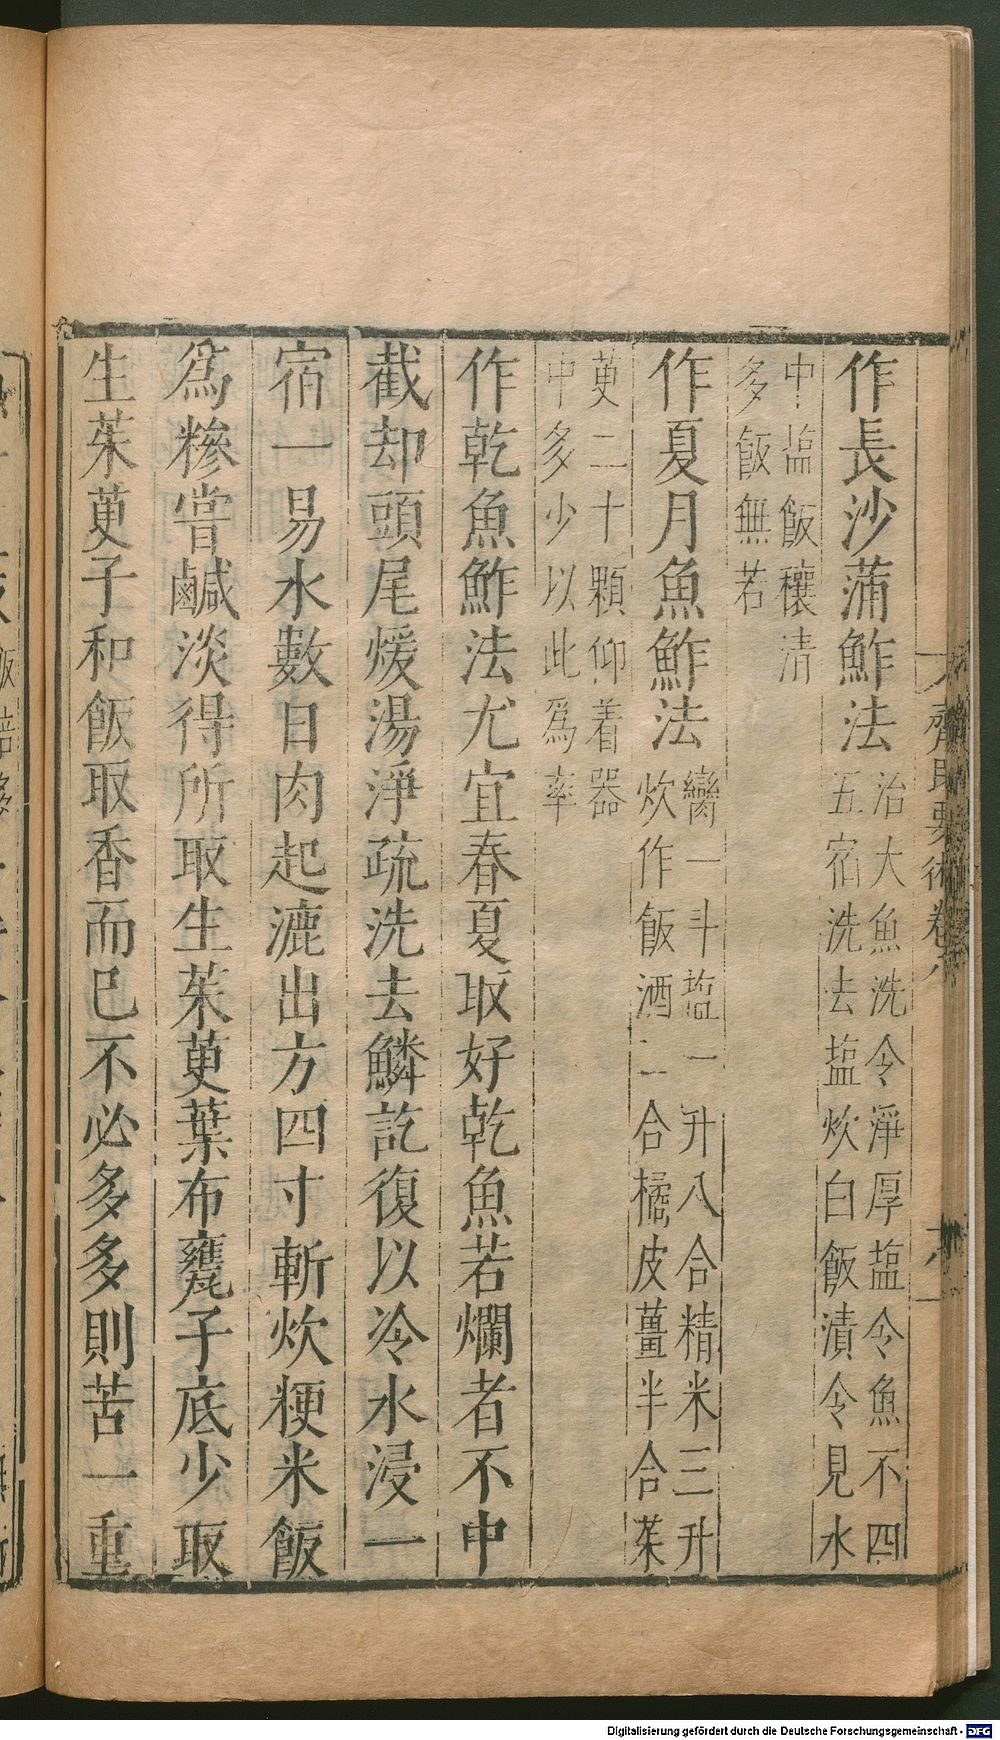 齊民要術卷八
作長沙蒲鮓法治大魚洗令淨厚塩令魚不四
五宿洗去塩炊白飯漬令見水
中塩飯穰清
多飯無若
作夏月魚鮓法臠一斗塩一升八合精米三升
炊作飯酒二合橘皮薑半合茱
萸二十顆仰着器
中多少以此爲率
作乾魚鮓法尤宜春夏取好乾魚若爛者不中
截却頭尾煖湯淨疏洗去鱗訖復以冷水浸一
宿一易水數日肉起漉出方四寸斬炊粳米飯
爲糝嘗鹹淡得所取生茱萸葉布甕子底少取
生茱萸子和飯取香而已不必多多則苦一重
Digitalisierung gefördert durch die Deutsche Forschungsgemeinschaft - DFG